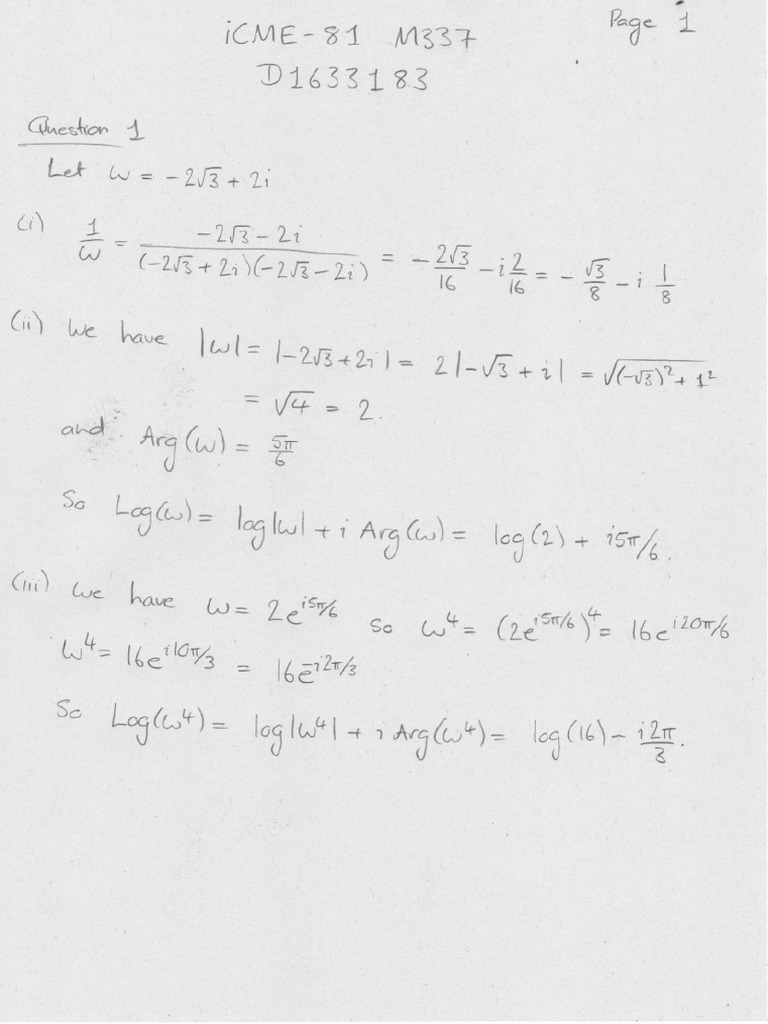 Page 1
iCME-81 M337
D1633183
Question 1
Let ω = -2√3 + 2i
(i) 1/ω = (-2√3 - 2i)/((-2√3 + 2i)(-2√3 - 2i)) = - 2√3/16 - i 2/16 = - √3/8 - i 1/8
(ii) We have |ω| = |-2√3 + 2i| = 2|-√3 + i| = √((-√3)² + 1²)
= √4 = 2.
and Arg(ω) = 5π/6
So Log(ω) = log|ω| + i Arg(ω) = log(2) + i5π/6.
(iii) We have ω = 2e^{i5π/6} so ω⁴ = (2e^{i5π/6})⁴ = 16e^{i20π/6}
ω⁴ = 16e^{i10π/3} = 16e^{-i2π/3}
So Log(ω⁴) = log|ω⁴| + i Arg(ω⁴) = log(16) - i2π/3.